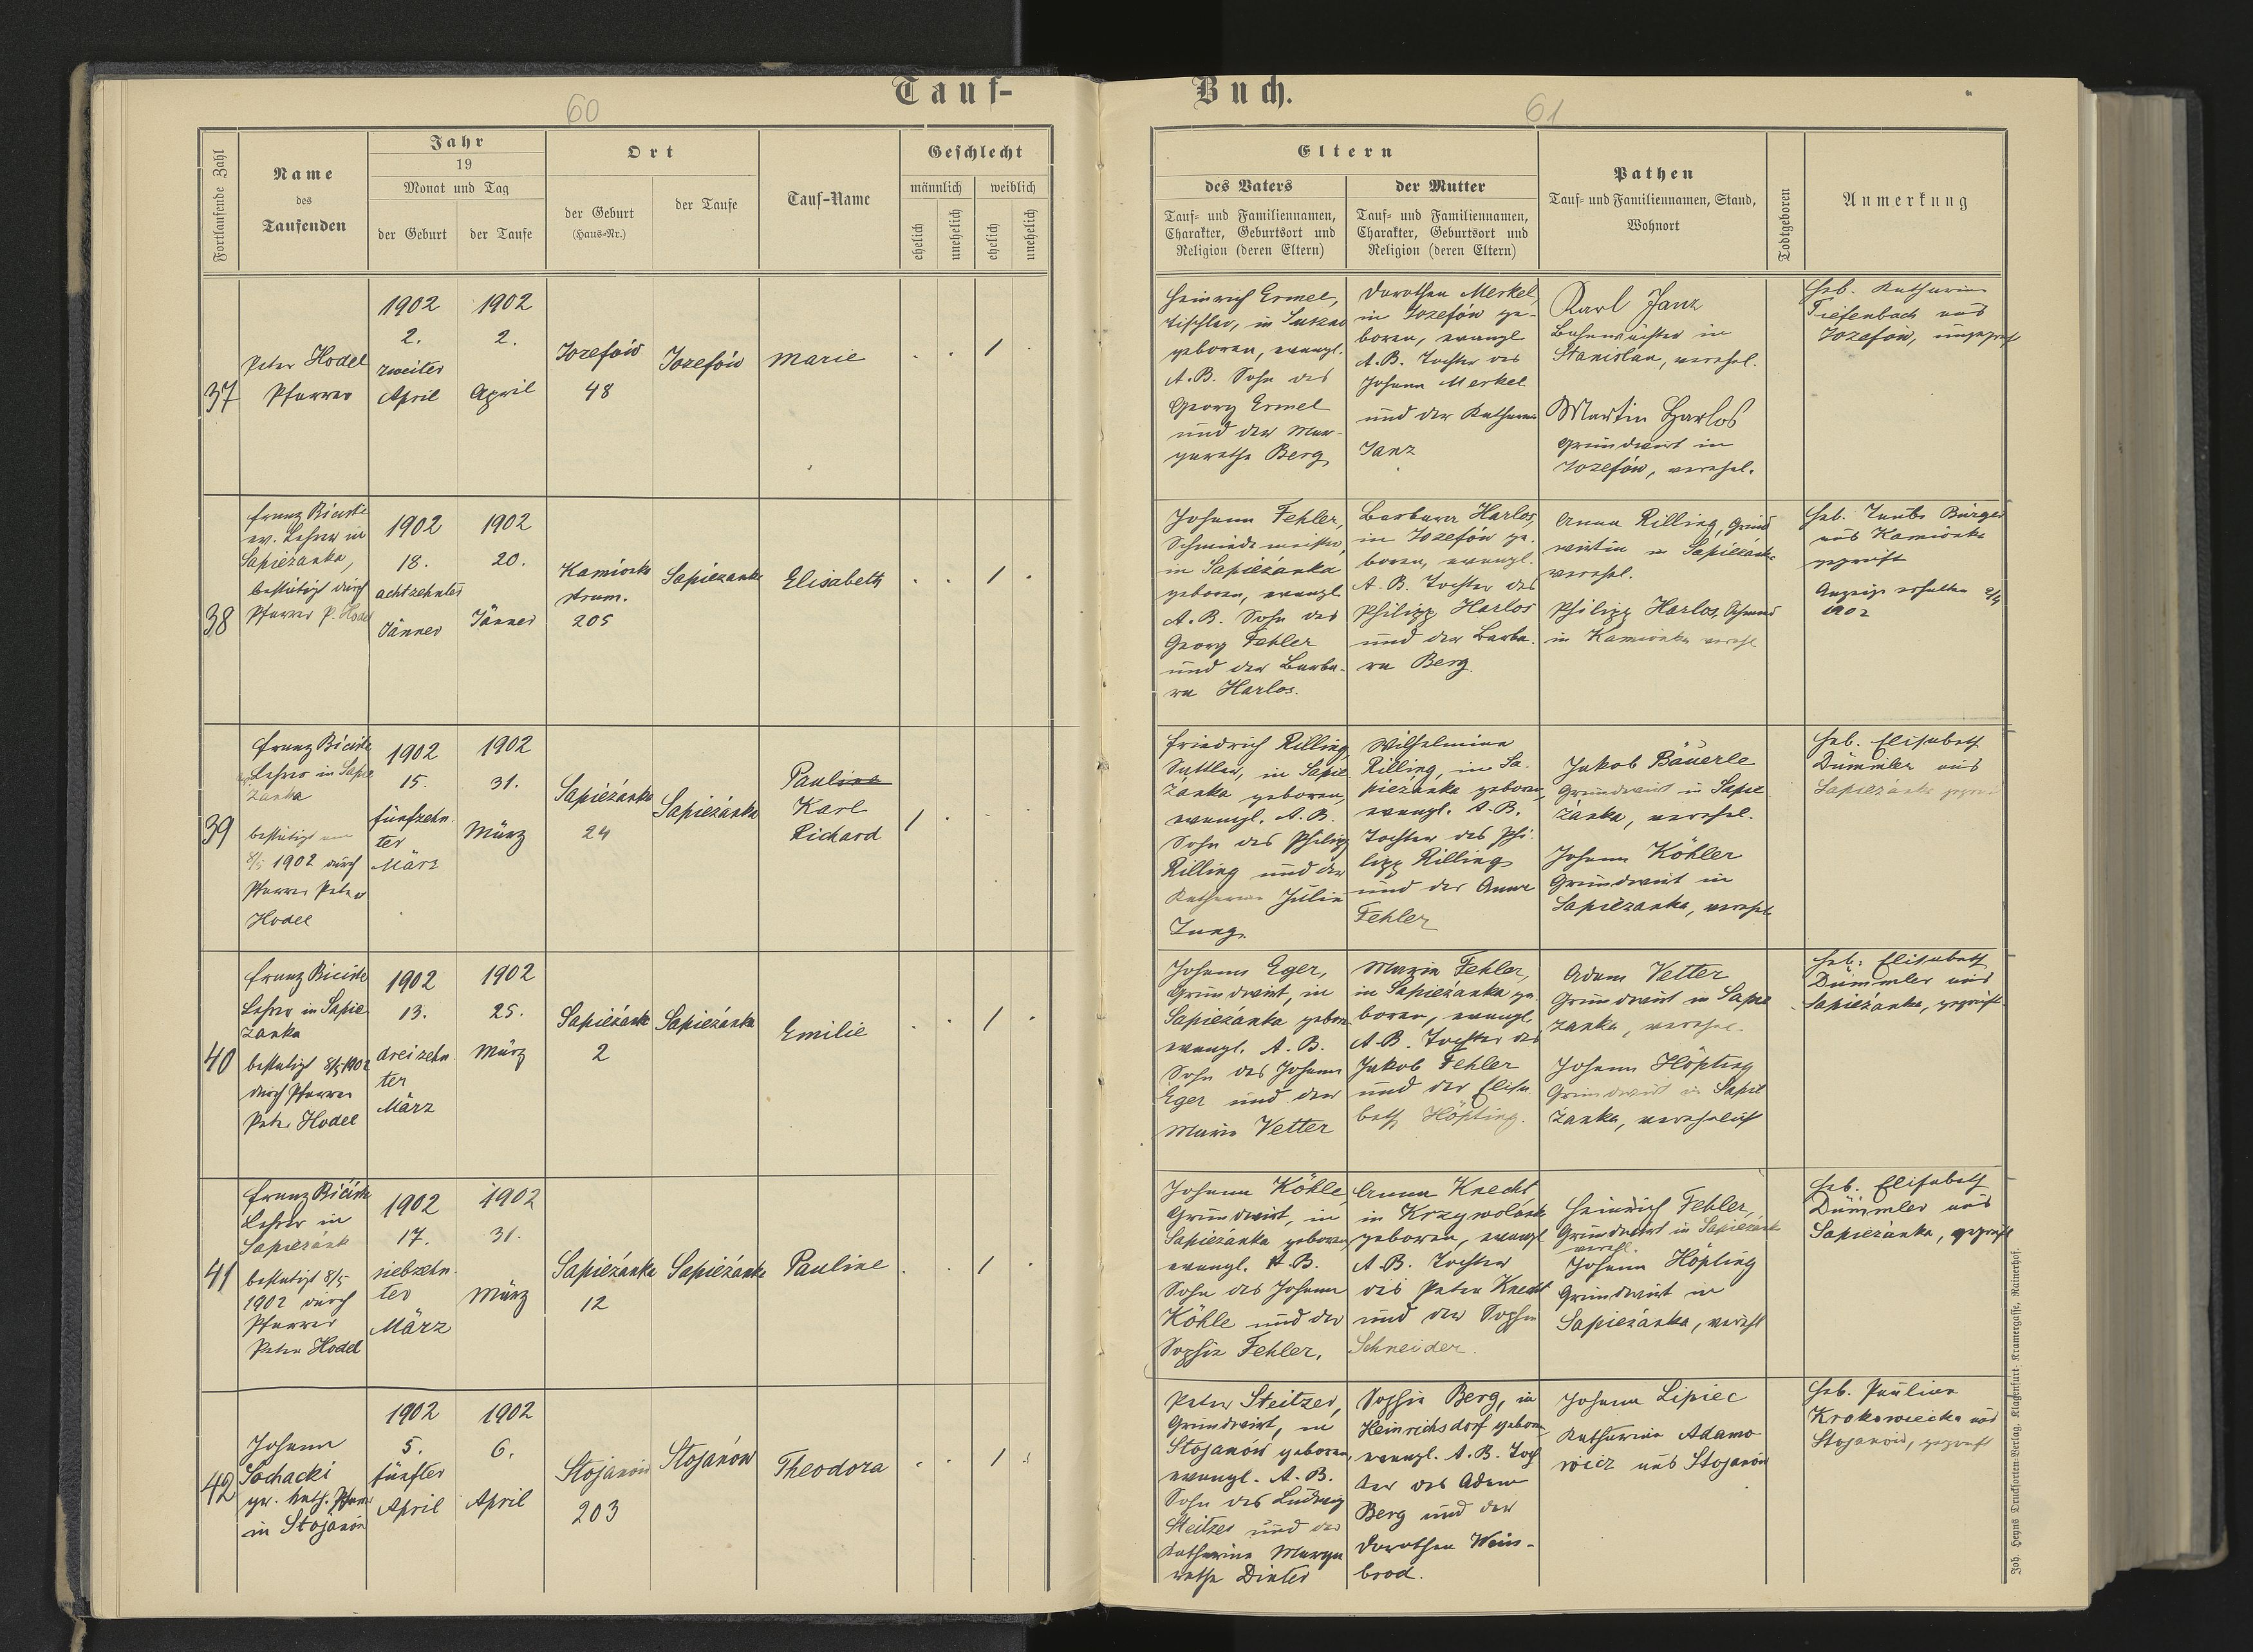 Tauf-
Buch.
60
61
Fortlaufende Zahl
Name
des
Taufenden
Jahr
19
Monat und Tag
der Geburt
der Taufe
Ort
der Geburt
(Haus-Nr.)
der Taufe
Tauf-Name
Geschlecht
männlich
weiblich
ehelich
unehelich
ehelich
unehelich
Eltern
des Vaters
Tauf- und Familiennamen,
Charakter, Geburtsort und
Religion (deren Eltern)
der Mutter
Tauf- und Familiennamen,
Charakter, Geburtsort und
Religion (deren Eltern)
Pathen
Tauf- und Familiennamen, Stand,
Wohnort
Todtgeboren
Anmerkung
37
Peter Hodel
Pfarrer
1902
2.
zweiter
April
1902
2.
April
Jozefów
48
Jozefów
Marie
. . 1 .
Heinrich Ermel,
Tischler, in
geboren, evangl.
A.B. Sohn des
Georg Ermel
und der Mar-
garetha Berg
Dorothea Merkel,
in Jozefów ge-
boren, evangl.
A.B. Tochter des
Johann Merkel
und der Katharina
Janz
Karl Janz
Bahnwächter in
Stanislau, verehel.
Martin Harlos
Grundwirt in
Jozefów, verehel.
Heb. Katharina
Tiefenbach aus
Jozefów, ungeprüft
38
Franz
ev. Lehrer in
Sapiezanka,
bestätigt durch
Pfarrer P. Hodel
1902
18.
achtzehnter
Jänner
1902
20.
Jänner
Kamionka
strum.
205
Sapiezanka
Elisabeth
. . 1 .
Johann Fehler,
Schmiedmeister,
in Sapiezanka
geboren, evangl.
A.B. Sohn des
Georg Fehler
und der Barba-
ra Harlos.
Barbara Harlos,
in Jozefów ge-
boren, evangl.
A.B. Tochter des
Philipp Harlos
und der Barba-
ra Berg.
Anna Rilling, Grund
wirtin in Sapiezanka
verehel.
Philipp Harlos, Schmied
in Kamionka verehl
Heb. Bürger
aus Kamionka
geprüft
Anzeige erhalten 2/4
1902
39
Franz
Lehrer in Sapie
zanka
bestätigt am
8/5 1902 durch
Pfarrer Peter
Hodel
1902
15.
fünfzehn-
ter
März
1902
31.
März
Sapiezanka
24
Sapiezanka
Pauline
Karl
Richard
1 .
Friedrich Rilling,
Sattler, in Sapie
zanka geboren,
evangl. A.B.
Sohn des Philipp
Rilling und der
Katharina Julia
Jung.
Wilhelmina
Rilling, in Sa-
piezanka geboren,
evangl. A.B.
Tochter des Phi-
lipp Rilling
und der Anna
Fehler
Jakob Bäuerle
Grundwirt in Sapie
zanka, verehel.
Johann Köhler
Grundwirt in
Sapiezanka, verehel
Heb. Elisabeth
Dümmler aus
Sapiezanka
40
Franz
Lehrer in Sapie
zanka
bestätigt 8/5 1902
durch Pfarrer
Peter Hodel
1902
13.
dreizehn-
ter
März
1902
25.
März
Sapiezanka
2
Sapiezanka
Emilie
. . 1 .
Johann Eger,
Grundwirt, in
Sapiezanka geboren
evangl. A.B.
Sohn des Johann
Eger und der
Maria Vetter
Maria Fehler,
in Sapiezanka ge-
boren, evangl.
A.B. Tochter des
Jakob Fehler
und der Elisa-
beth Höpting.
Adam Vetter
Grundwirt in Sapie
zanka, verehel.
Johann Höpting
Grundwirt in Sapie
zanka, verehelicht
Heb. Elisabeth
Dümmler aus
Sapiezanka, geprüft.
41
Franz
Lehrer in
Sapiezank
bestätigt 8/5
1902 durch
Pfarrer
Peter Hodel
1902
17.
siebzehn-
ter
März
1902
31.
März
Sapiezanka
12
Sapiezanka
Pauline
. . 1 .
Johann Köhle,
Grundwirt, in
Sapiezanka geboren,
evangl. A.B.
Sohn des Johann
Köhle und der
Sophia Fehler.
Anna Knecht
in Krzywolanka
geboren, evangl
A.B. Tochter
des Peter Knecht
und der Sophia
Schneider.
Heinrich Fehler,
Grundwirt in Sapiezanka
verehl.
Johann Höpting
Grundwirt in
Sapiezanka, verehl
Heb. Elisabeth
Dümmler aus
Sapiezanka, geprüft
42
Johann
Sochacki
gr. kath. Pfarrer
in Stojanów
1902
5.
fünfter
April
1902
6.
April
Stojanów
203
Stojanów
Theodora
. . 1 .
Peter Steitzer,
Grundwirt, in
Stojanów geboren,
evangl. A.B.
Sohn des Ludwig
Steitzer und der
Katharina Marga
retha Dinter
Sophia Berg, in
Heinrichsdorf geboren,
evangl. A.B. Toch
ter des Adam
Berg und der
Dorothea Wein-
brod.
Johann Lipiec
Katharina Adamo
wicz aus Stojanów
Heb. Paulina
Krokowiecka aus
Stojanów, geprüft
Joh. Heyns Drucksorten-Verlag, Klagenfurt, Kramergasse, Rainerhof.